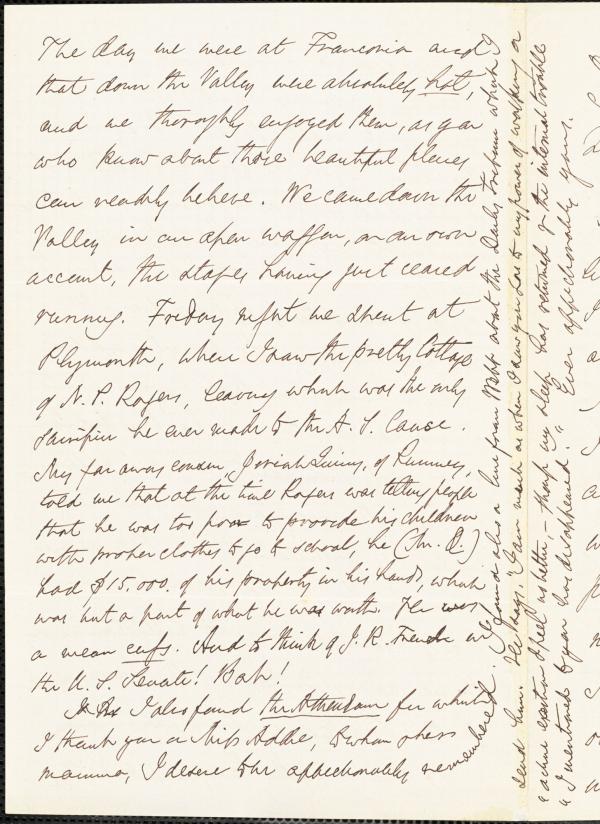 The day we were at Franconia and
that down the Valley were absolutely hot,
and we thoroughly enjoyed them, as you
who know about those beautiful places
can readily believe. We came down the
Valley in an open waggon, on our own
account, the stages having just ceased
running. Friday night we spent at
Plymouth, where I saw the pretty Cottage
of N. P. Rogers, leaving which was the only
sacrifice he ever made to the A. S. Cause.
My far away cousin, Josiah Quincy, of Rumney,
told me that at the time Rogers was telling people
that he was too poor to provide his children
with proper clothes to go to school, he (Mr. Q.)
had $15,000. of his property in his hands, which
was but a part of what he was worth. He was
a mean cuss. And to think of J. R. French in
the U. S. Senate! Bah!
I also found the Athenaeum for which
I thank you or Miss Addie, to whom & her
mamma, I desire to be affectionately remembered.
I found also a line from Webb about the Daily Tribune which I
send him. He says "I am much as when I saw you as to my power of walking or
"active exertion I feel no better, - though my sleep has returned & the internal trouble
"I mentioned to you has disappeared." Ever affectionately yours.